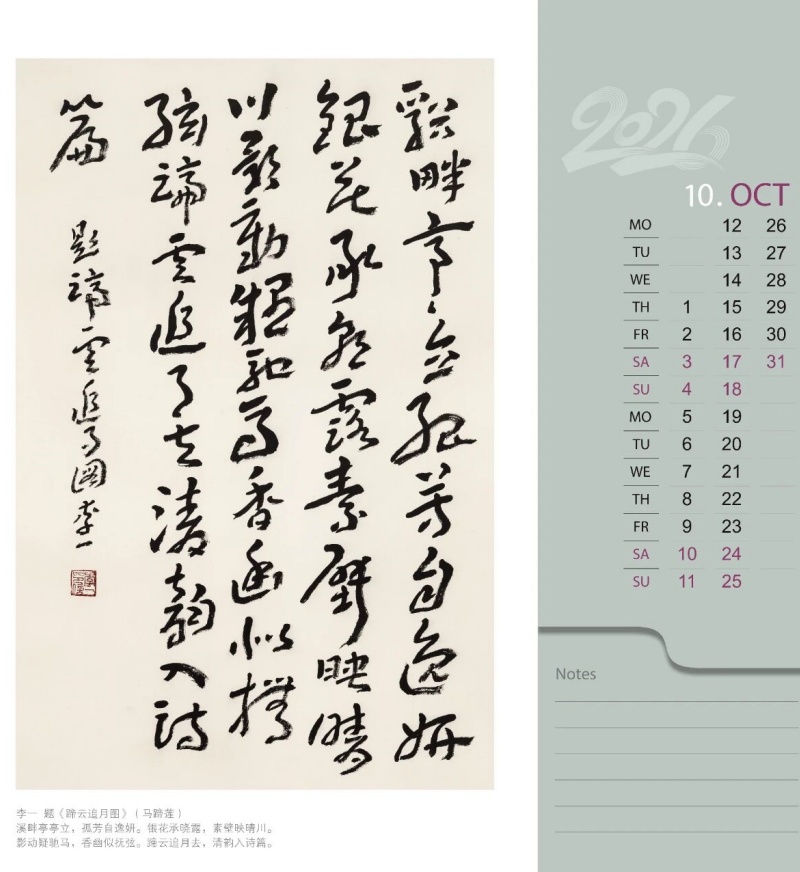 谿畔亭亭立孤芳自逸妍
銀花承曉露素壁映晴
川影動疑馳馬香幽似撫
弦蹄雲追月去清韻入詩
篇
題蹄雲追月圖李一
李一 题《蹄云追月图》（马蹄莲）
溪畔亭亭立，孤芳自逸妍。银花承晓露，素壁映晴川。
影动疑驰马，香幽似抚弦。蹄云追月去，清韵入诗篇。
2026
10. OCT
MO 12 26
TU 13 27
WE 14 28
TH 1 15 29
FR 2 16 30
SA 3 17 31
SU 4 18
MO 5 19
TU 6 20
WE 7 21
TH 8 22
FR 9 23
SA 10 24
SU 11 25
Notes